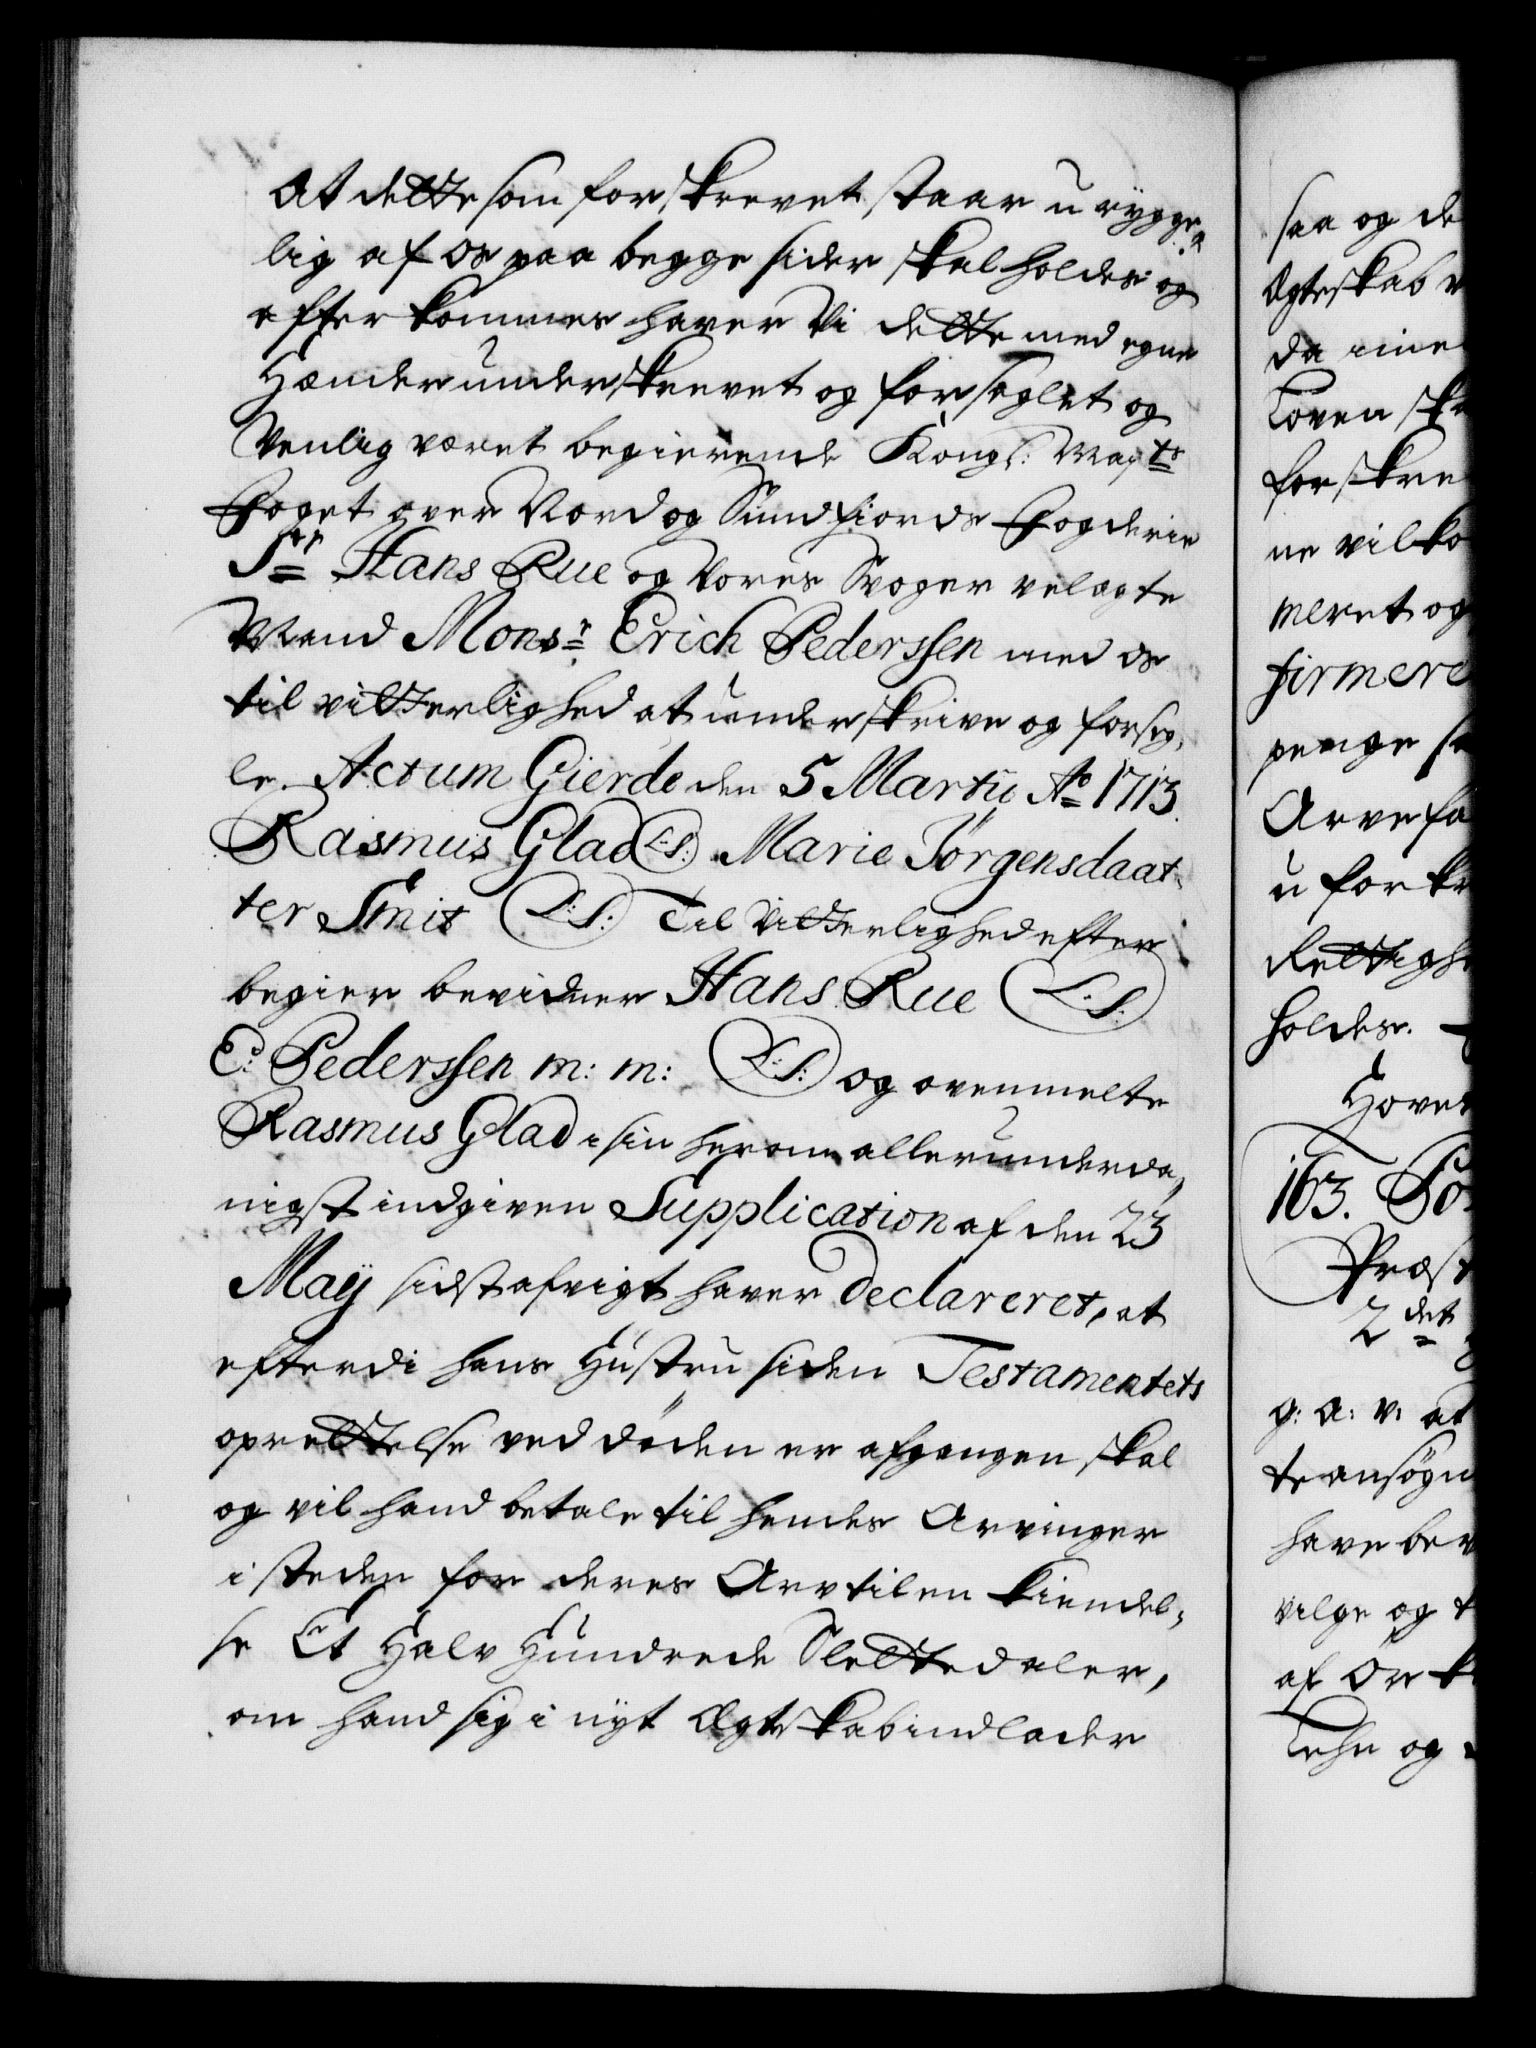 At dette som forskrevet staar u rygge-
lig af os paa begge sider skal holdes og
efterkommes haver Vi dette med egne
Hænder underskrevet og forseglet og
Venlig været begierende Kongl: Mayts
Foget over Nord og Sundfiords Fogderie
Sr Hans Rue og Vores Svoger velagte
Mand Monsr Erich Pederssen med os
til vitterlighed at underskrive og forseg,
le. Actum Gierde den 5 Martii Ao 1713.
Rasmus Glad L:S: Marie Jörgensdaat-
ter Smit L:S: Til Vitterlighed efter
begier bevidner Hans Rue L:S:
E: Pederssen m: m: L:S: og ovenmelte
Rasmus Glad i sin herom allerunderda,
nigst indgiven Supplication af den 23
Maij sidst afvigt haver Declareret, at
efterdi hans Hustru siden Testamentets
oprettelse ved döden er afgangen, skal
og vil hand betale til hendes Arvinger
i steden for deres Arvtilen kiendel,
se Et Halv Hundrede Slettedaler,
om hand sig i nyt Ægteskab indlader
saa og de
Ægteskab
da
Loven
forskre
ne vilko
meret og
firmere
penge
Arvefa
u forkr
Rettigh
holdes.
Hovet
163.
Præst
2det
g: a: v: at
te ansøgn
have bev
vilge og t
af
Lehn og